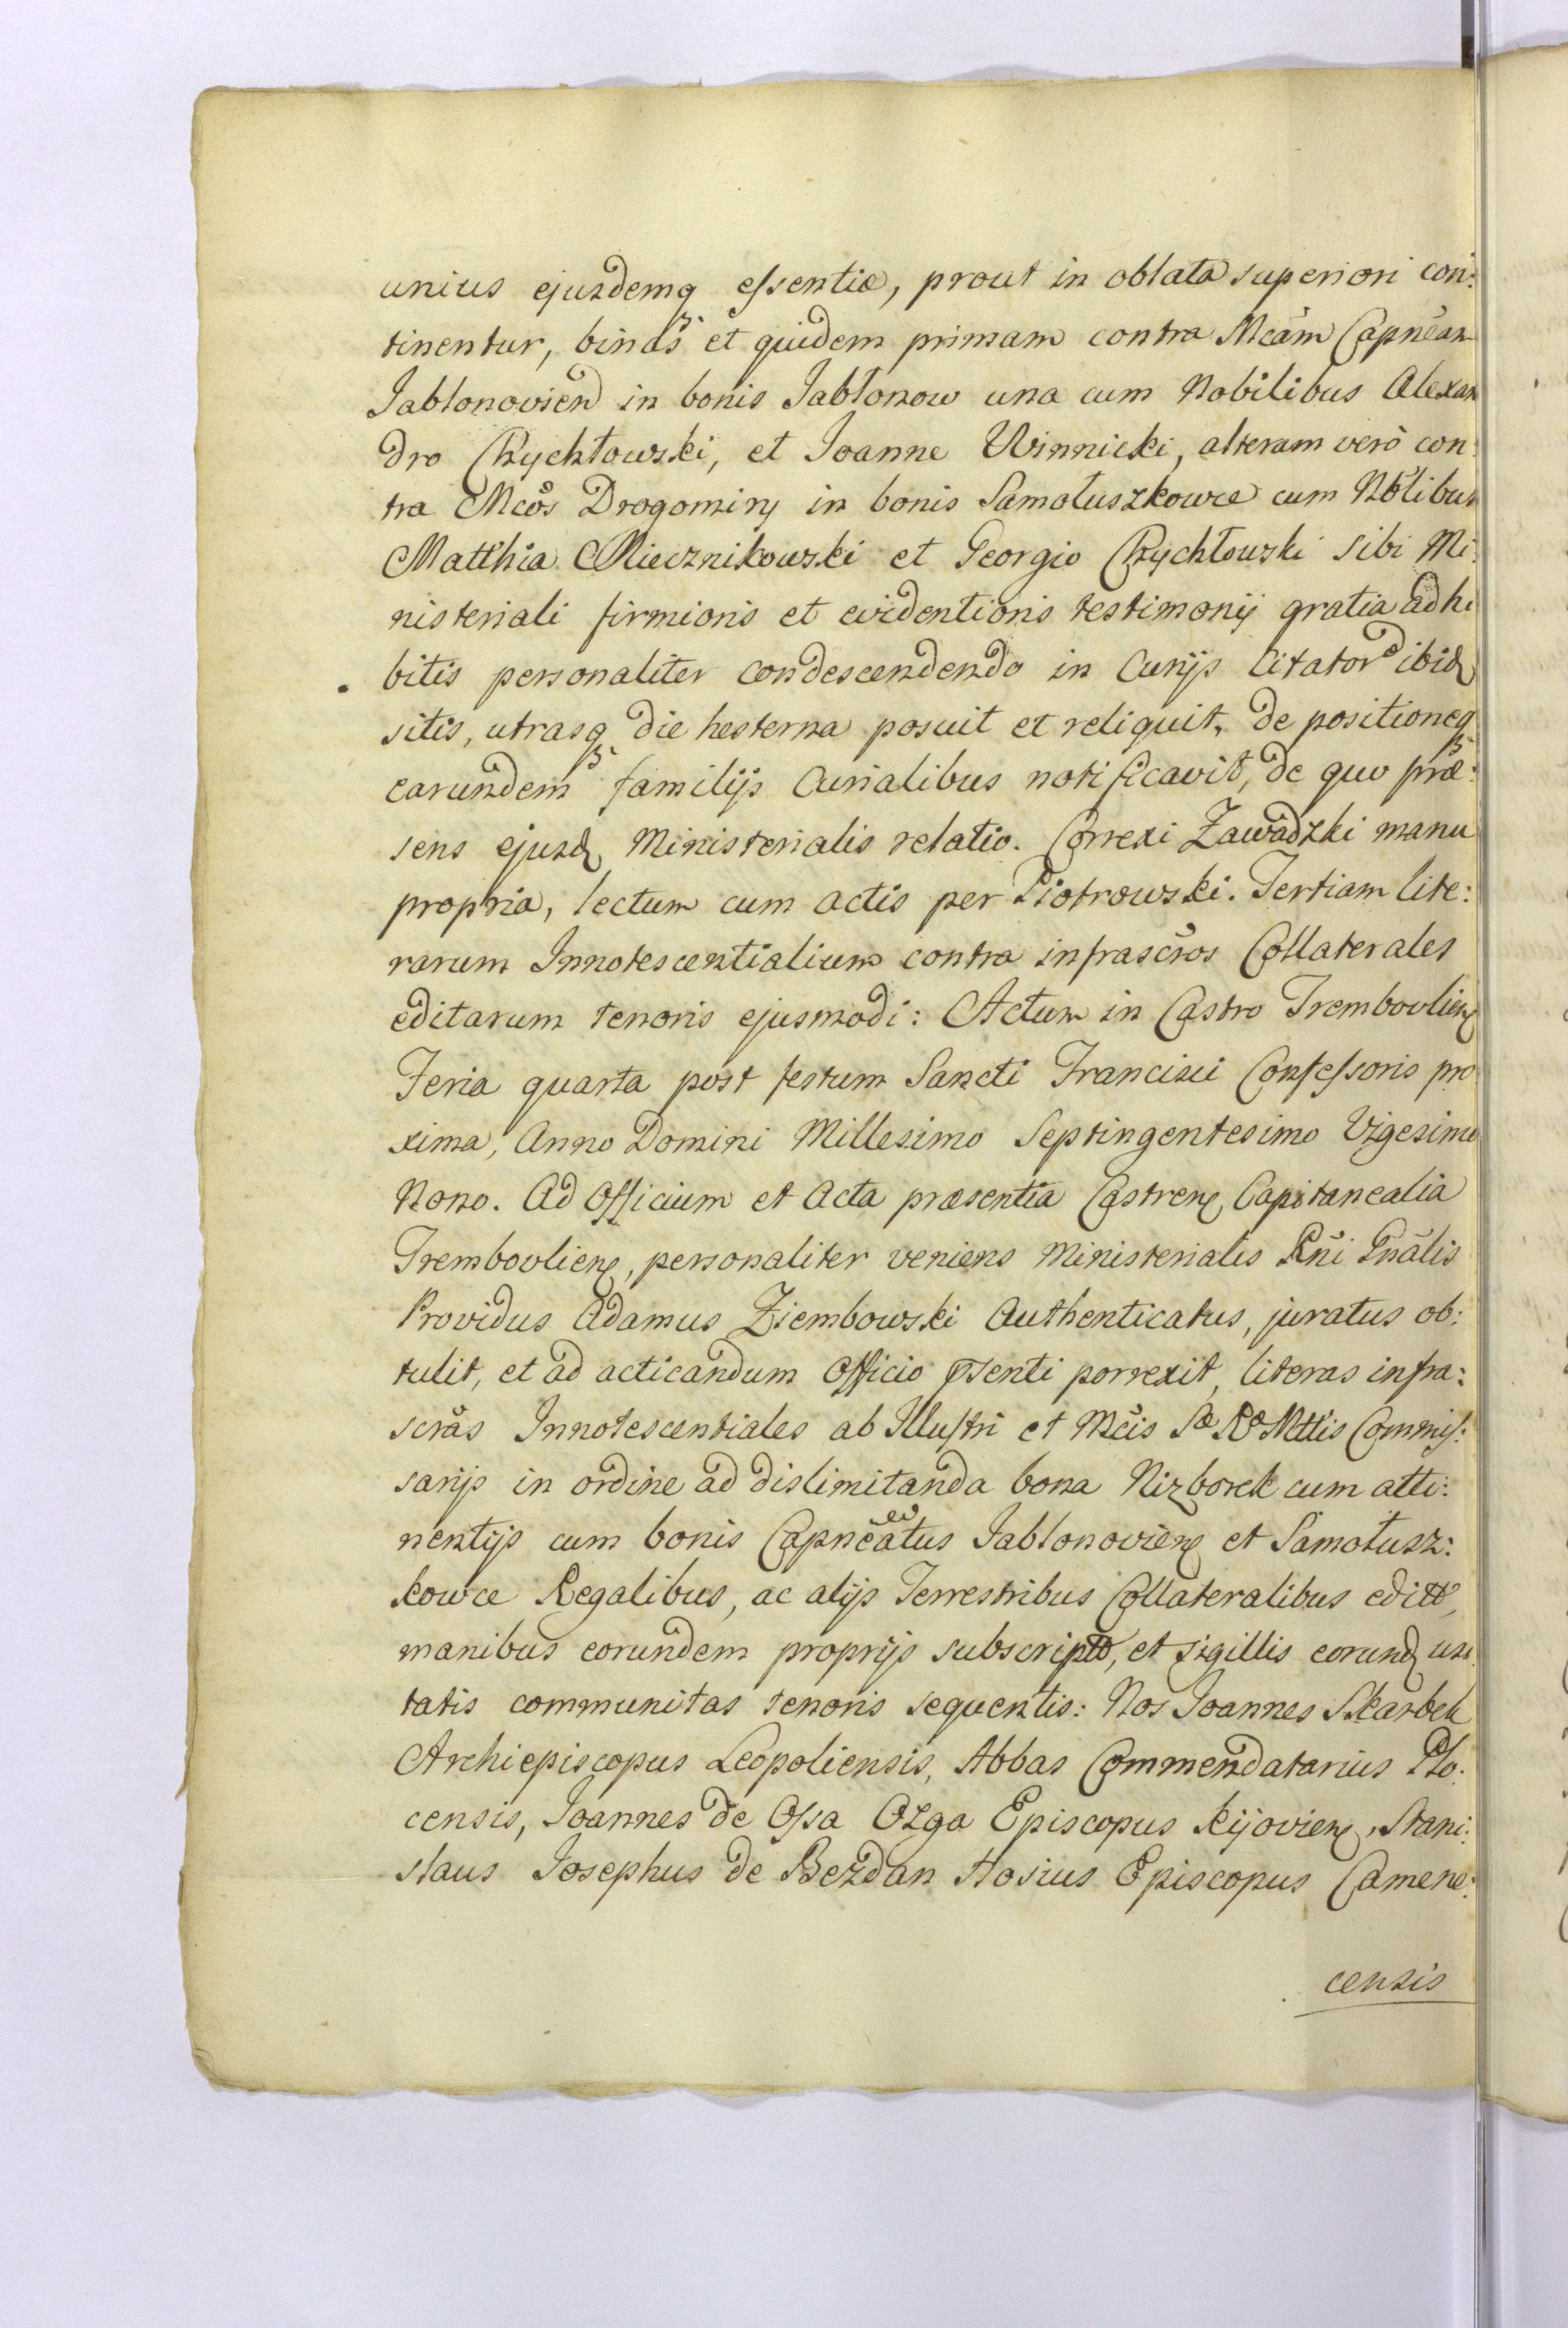 unius ejusdemq essentiæ, prout in oblata superiori con:
tinentur, binas et quidem primam contra Mcãm Capneãm
Jabłonovien in bonis Jabłonow una cum Nobilibus Alexan
dro Rychłowski, et Joanne Winnicki, alteram verò con:
tra Mcõs Drogomiry in bonis Samołuszkowce cum Nõlibus
Matthia Miecznikowski et Georgio Rychłowski sibi Mi:
nisteriali firmioris et evidentioris testimonij gratia adhi
bitis personaliter condescendendo in Curijs Citator ibid
sitis, utrasq die hesterna posuit et reliquit, de positioneq
earundem familijs Curialibus notificavit, de quo præ:
sens ejusd Ministerialis relatio. Correxi Zawadzki manu
propria, lectum cum actis per Piotrowski. Tertiam lite:
rarum Innotescentialium contra infrascrõs Collaterales
editarum tenoris ejusmodi: Actum in Castro Trembovlien
Feria quarta post festum Sancti Francisci Confessoris pro
xima, Anno Domini Millesimo Septingentesimo Vigesimo
Nono. Ad Officium et Acta præsentia Castren Capitanealia
Trembovlien, personaliter veniens Ministerialis Rñi Gnãlis
Providus Adamus Ziembowski Authenticatus, juratus ob:
tulit, et ad acticandum Officio psenti porrexit, literas infra:
scrãs Innotescentiales ab Illustri et Mcis Sæ Ræ Mttis Commis:
sarijs in ordine ad dislimitanda bona Nizborek cum atti:
nentijs cum bonis Capneatus Jabłonovien et Samołusz:
kowce Regalibus, ac alijs Terrestribus Collateralibus editt,
manibus eorundem proprijs subscriptt, et sigillis eorund usi
tatis communitas tenoris sequentis: Nos Joannes Skarbek
Archiepiscopus Leopoliensis, Abbas Commendatarius Plo:
censis, Joannes de Ossa Ozga Episcopus Kijovien, Stani:
slaus Josephus de Bezdan Hosius Episcopus Camene:
censis